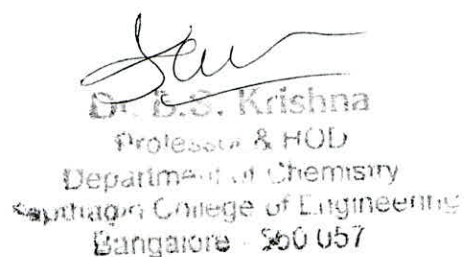 Dr. B.S. Krishna
Professor & HOD
Department of Chemistry
College of Engineering
Bangalore - 560 057